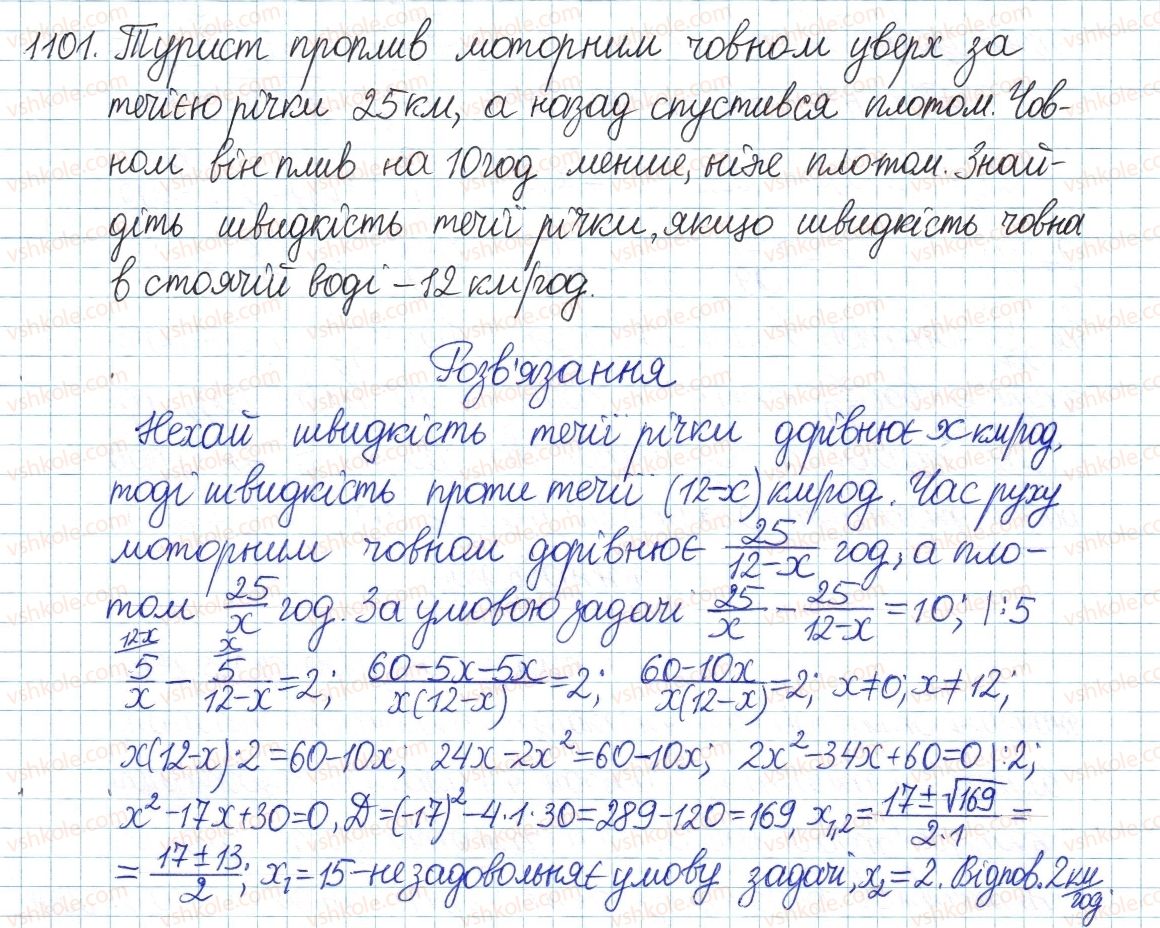 1101. Турист проплив моторним човном уверх за
течією річки 25 км, а назад спустився плотом. Чов-
ном він плив на 10 год менше, ніж плотом. Знай-
діть швидкість течії річки, якщо швидкість човна
в стоячій воді – 12 км/год.
Розв'язання
Нехай швидкість течії річки дорівнює x км/год,
тоді швидкість проти течії (12-x) км/год. Час руху
моторним човном дорівнює 25/(12-x) год, а пло-
том 25/x год. За умовою задачі 25/x - 25/(12-x) = 10; |:5
12-x x
5/x - 5/(12-x) = 2; (60-5x-5x)/(x(12-x)) = 2; (60-10x)/(x(12-x)) = 2; x≠0; x≠12;
x(12-x)·2=60-10x; 24x-2x²=60-10x; 2x²-34x+60=0 |:2;
x²-17x+30=0, Д=(-17)²-4·1·30=289-120=169, x₁,₂ = (17±√169)/(2·1) =
= (17±13)/2; x₁=15-не задовольняє умову задачі, x₂=2. Відпов. 2 км/год.
vshkole.com